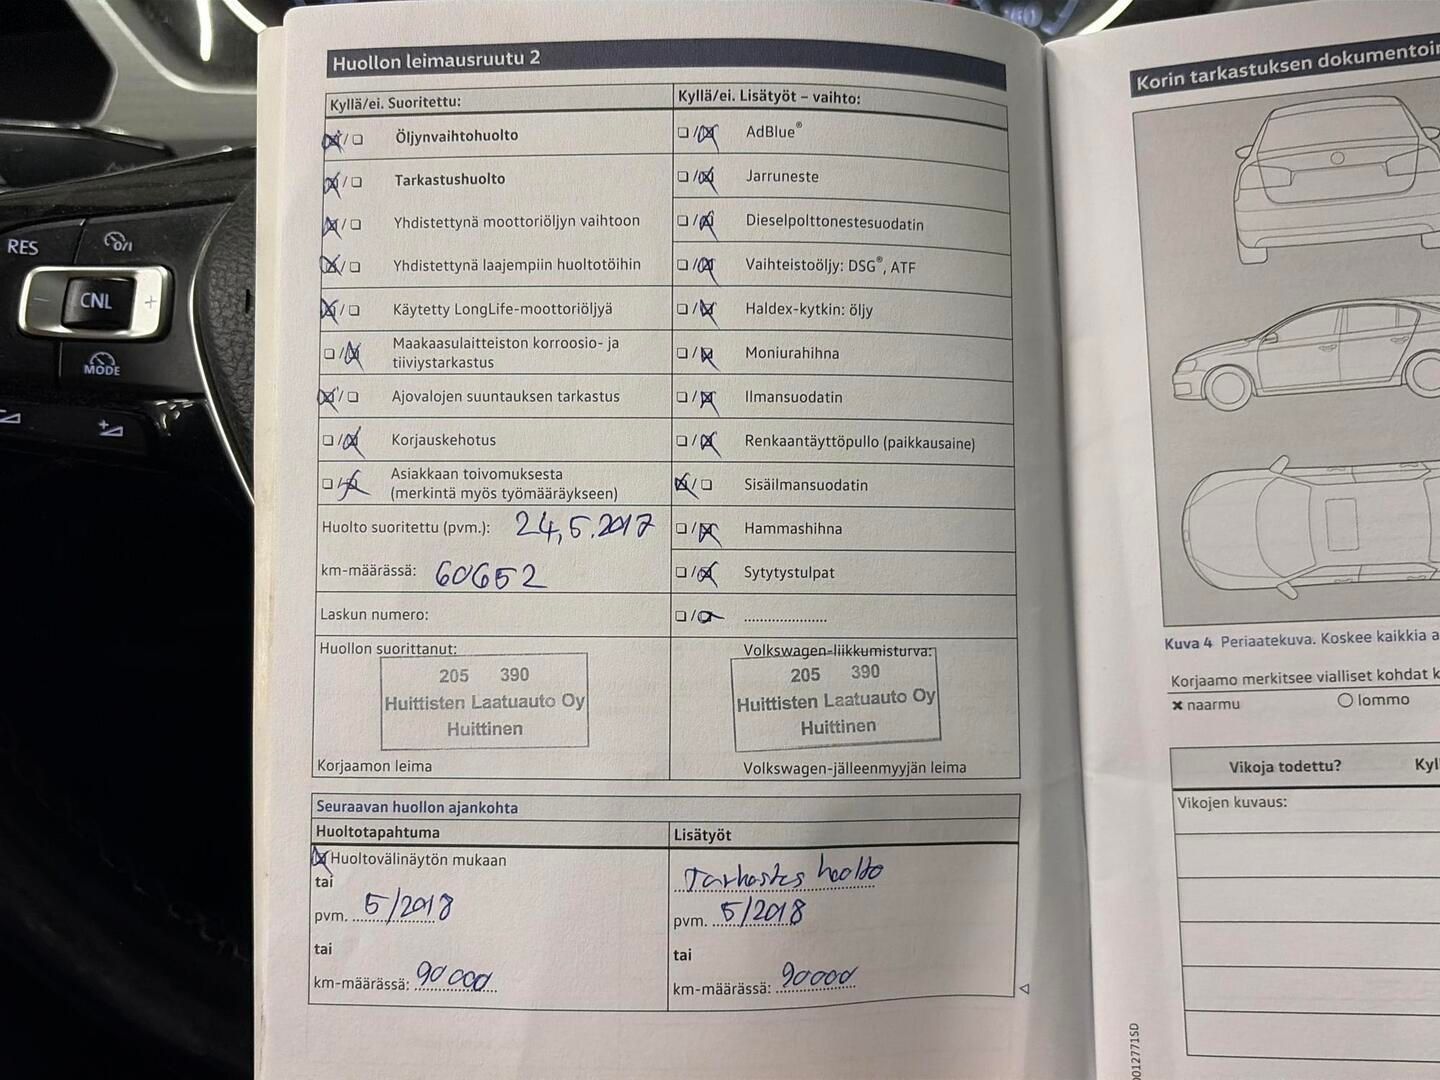 Huollon leimausruutu 2
Kyllä/ei. Suoritettu:
Öljynvaihtohuolto
Tarkastushuolto
Yhdistettynä moottoriöljyn vaihtoon
Yhdistettynä laajempiin huoltotöihin
Käytetty LongLife-moottoriöljyä
Maakaasulaitteiston korroosio- ja
tiiviystarkastus
Ajovalojen suuntauksen tarkastus
Korjauskehotus
Asiakkaan toivomuksesta
(merkintä myös työmääräykseen)
Huolto suoritettu (pvm.): 24,5.2017
km-määrässä: 60652
Laskun numero:
Huollon suorittanut:
205 390
Huittisten Laatuauto Oy
Huittinen
Korjaamon leima
Kyllä/ei. Lisätyöt – vaihto:
AdBlue®
Jarruneste
Dieselpolttonestesuodatin
Vaihteistoöljy: DSG®, ATF
Haldex-kytkin: öljy
Moniurahihna
Ilmansuodatin
Renkaantäyttöpullo (paikkausaine)
Sisäilmansuodatin
Hammashihna
Sytytystulpat
Volkswagen-liikkumisturva:
205 390
Huittisten Laatuauto Oy
Huittinen
Volkswagen-jälleenmyyjän leima
Seuraavan huollon ajankohta
Huoltotapahtuma
Huoltovälinäytön mukaan
tai
pvm. 5/2018
tai
km-määrässä: 90000
Lisätyöt
Tarkastus huolto
pvm. 5/2018
tai
km-määrässä: 90000
Korin tarkastuksen
Kuva 4 Periaatekuva. Koskee kaikkia
Korjaamo merkitsee vialliset kohdat
naarmu
lommo
Vikoja todettu?
Vikojen kuvaus:
RES
CNL
MODE